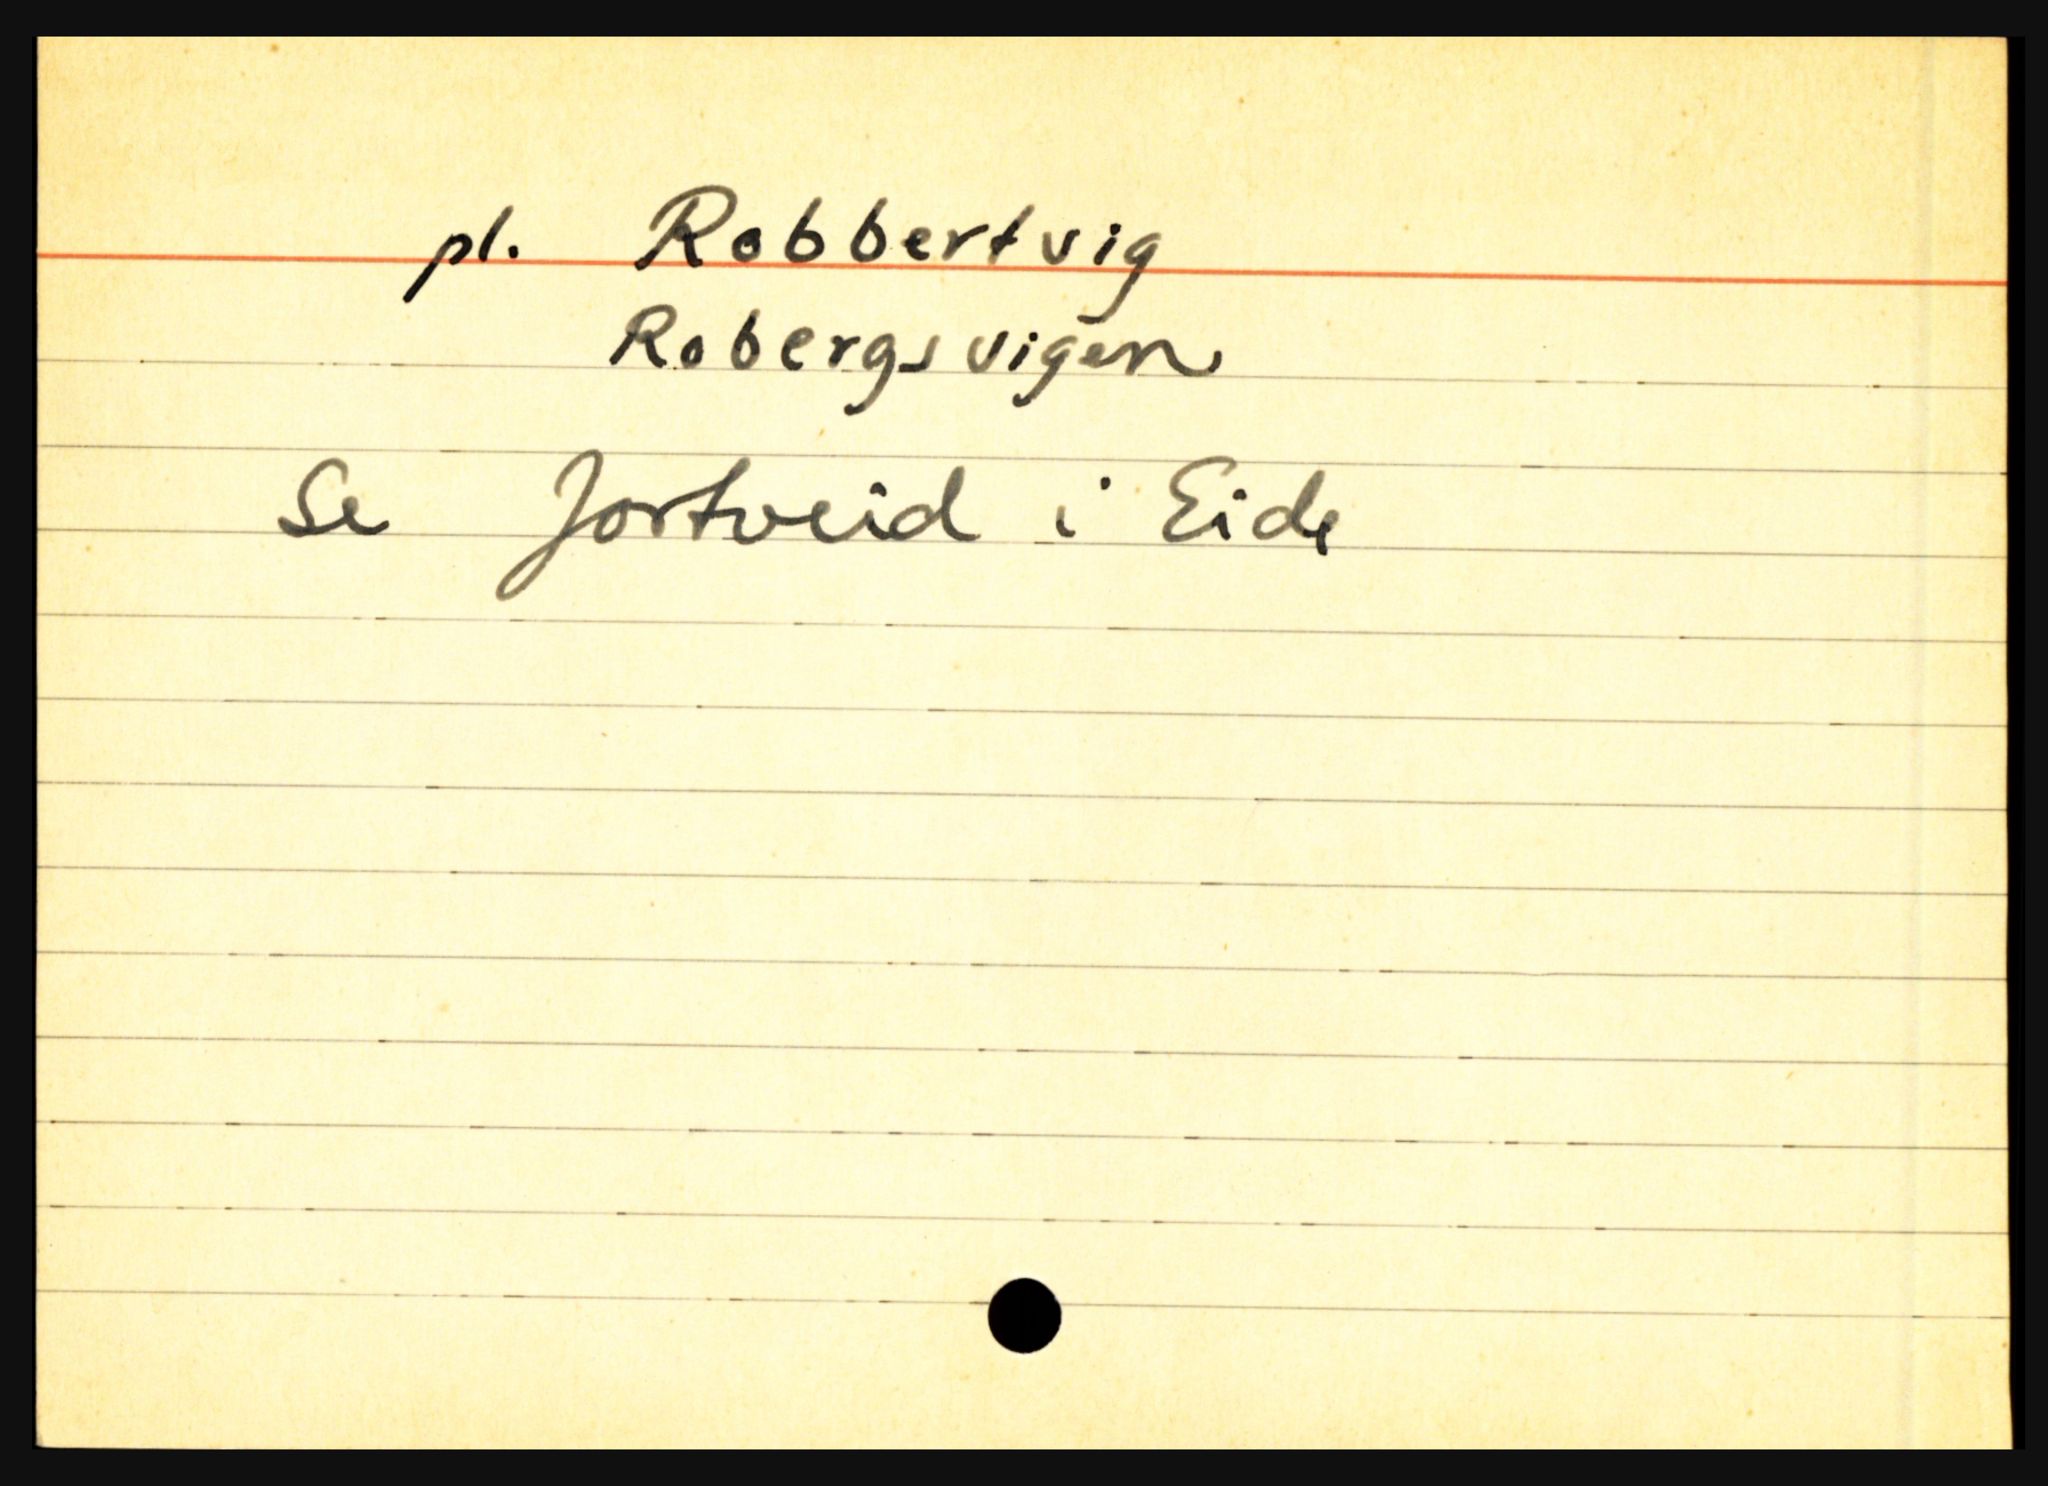 pl. Robbertvig
Robergsvigen
Se Jortveid i Eide